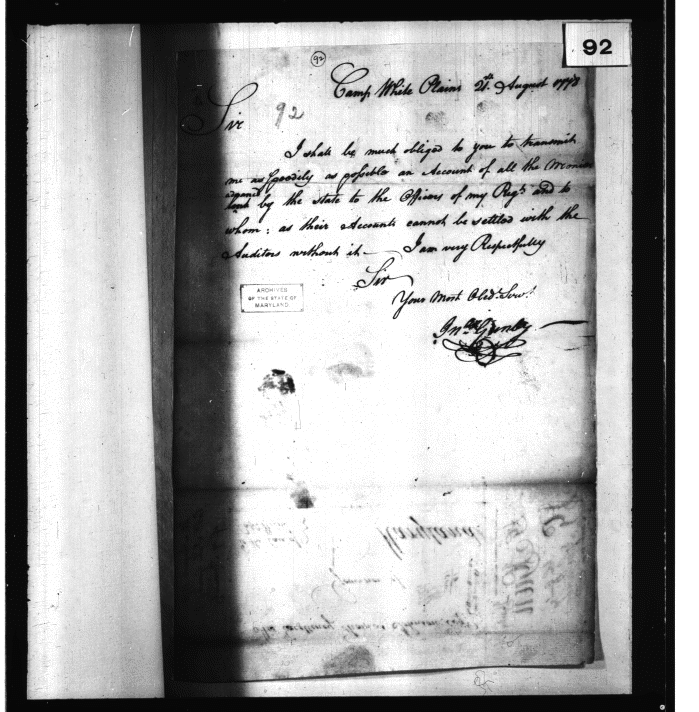 92
92
Camp White Plains 21st August 1778
Sir
92
I shall be much obliged to you to transmit
me as speedily as possible an Account of all the Monies
advanced
lent by the state to the Officers of my Regt and to
whom; as their Accounts cannot be settled with the
Auditors without it — I am very Respectfully
Sir
Your Most Obedt Servt
Jno Gunby
ARCHIVES
OF THE STATE OF
MARYLAND
Maryland